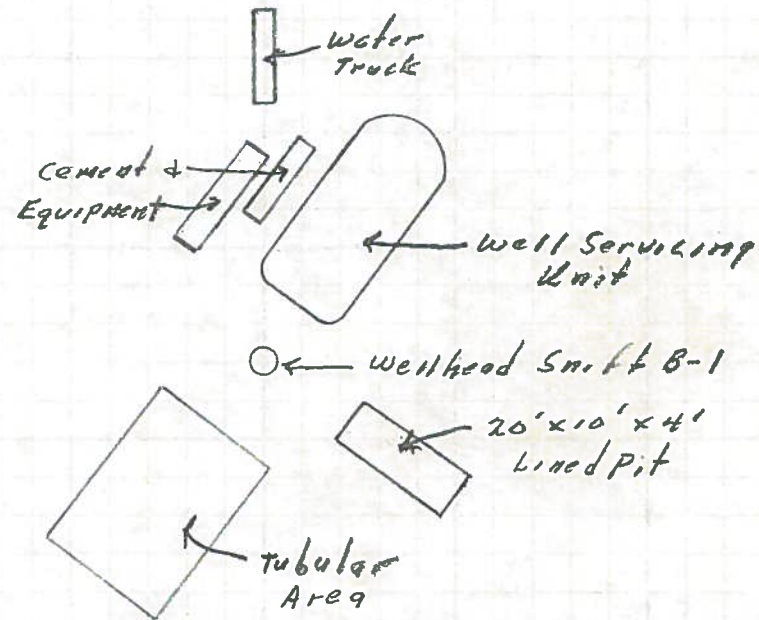 Water
Truck
Cement &
Equipment
Well Servicing
Unit
Wellhead Smift B-1
20' x 10' x 4'
Lined Pit
Tubular
Area